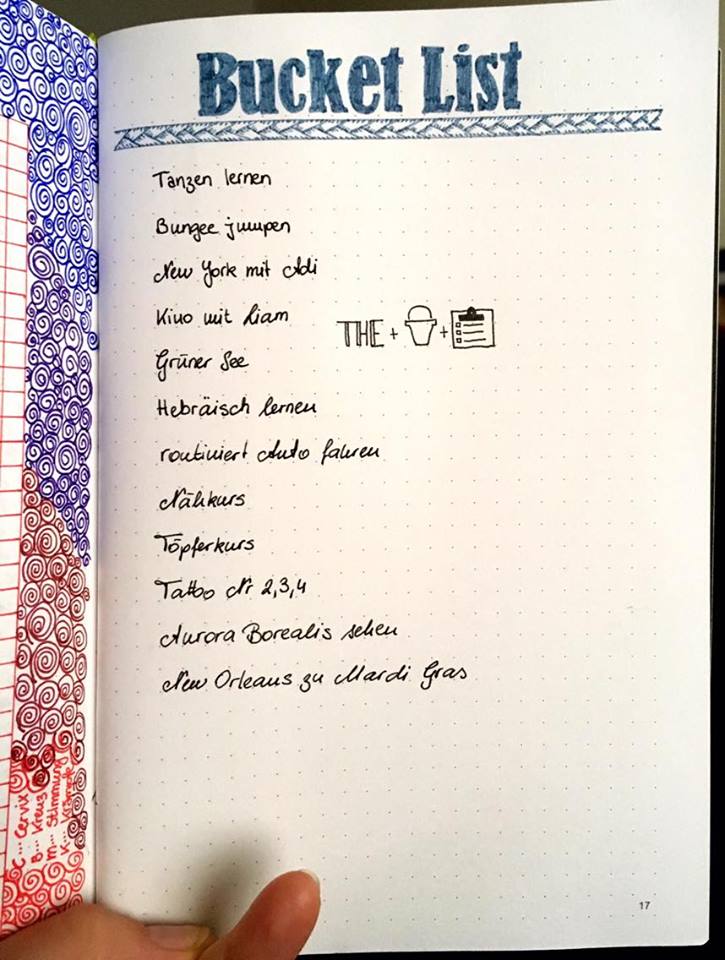 Bucket List
Tanzen lernen
Bungee jumpen
New York mit Adi
Kino mit Liam
THE + +
Grüner See
Hebräisch lernen
routiniert Auto fahren
Nähkurs
Töpferkurs
Tattoo Nr 2,3,4
Aurora Borealis sehen
New Orleans zu Mardi Gras
17
C... Cervix
B... Kreuz
M... Stimmung
K... Krämpfe